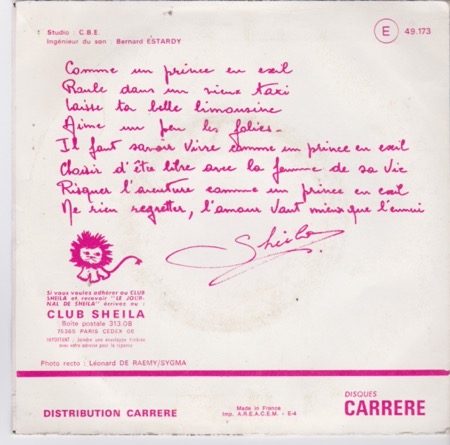 Studio : C.B.E.
Ingénieur du son : Bernard ESTARDY
E 49.173
Comme un prince en exil
Roule dans un vieux taxi
Laisse ta belle limousine
Aime un peu les folies.
Il faut savoir vivre comme un prince en exil
Choisir d'être libre avec la femme de sa vie
Risquer l'aventure comme un prince en exil
Ne rien regretter, l'amour vaut mieux que l'ennui
Sheila
Si vous voulez adhérer au CLUB
SHEILA et recevoir "LE JOUR-
NAL DE SHEILA" écrivez au :
CLUB SHEILA
Boîte postale 313.08
75365 PARIS CEDEX 08
IMPORTANT : Joindre une enveloppe timbrée
avec votre adresse pour la réponse
Photo recto : Léonard DE RAEMY/SYGMA
DISTRIBUTION CARRERE
Made in France
Imp. A.R.E.A.C.E.M. - E-4
DISQUES
CARRERE